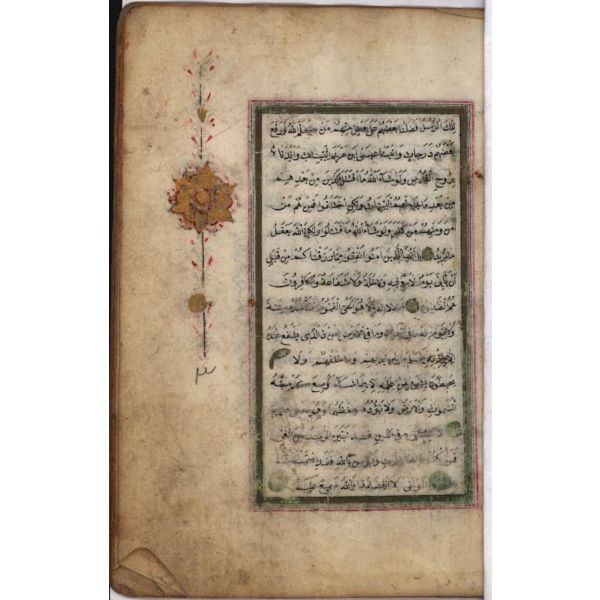 تلك الرسل فضلنا بعضهم على بعض منهم من كلم الله ورفع
بعضهم درجات واتينا عيسى ابن مريم البينات وايدناه
بروح القدس ولو شاء الله ما اقتتل الذين من بعدهم
من بعد ما جاءتهم البينات ولكن اختلفوا فمنهم من
امن ومنهم من كفر ولو شاء الله ما اقتتلوا ولكن الله يفعل
ما يريد يا ايها الذين امنوا انفقوا مما رزقناكم من قبل
ان يأتي يوم لا بيع فيه ولا خلة ولا شفاعة والكافرون
هم الظالمون الله لا اله الا هو الحي القيوم لا تأخذه سنة
ولا نوم له ما في السموات وما في الارض من ذا الذي يشفع عنده
الا باذنه يعلم ما بين ايديهم وما خلفهم ولا
يحيطون بشئ من علمه الا بما شاء وسع كرسيه
السموات والارض ولا يؤده حفظهما وهو العلي العظيم
لا اكراه في الدين قد تبين الرشد من الغي
فمن يكفر بالطاغوت ويؤمن بالله فقد استمسك
الوثقى لا انفصام لها والله سميع عليم
م
٣